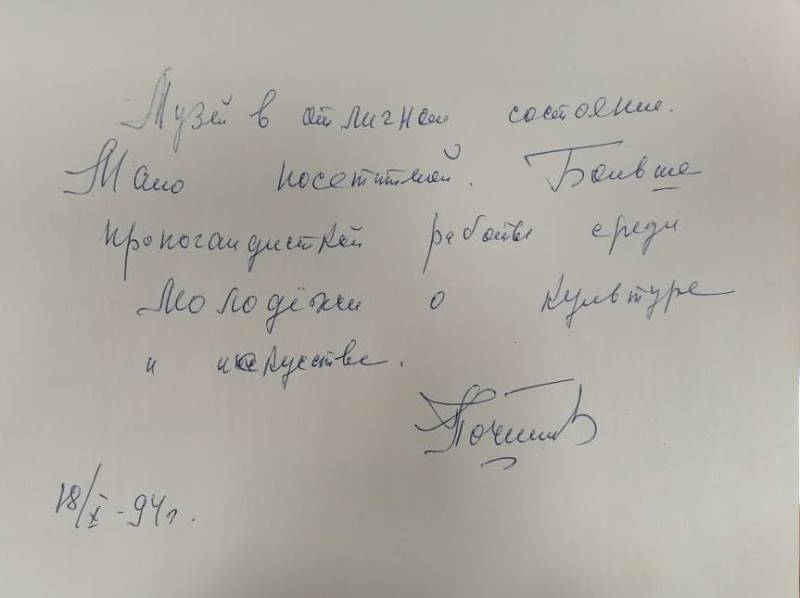 Музей в отличном состояние.
Мало посетителей. Больше
пропогандисткой работы среди
молодёжи о культуре
и искусстве.
18/X -94г.